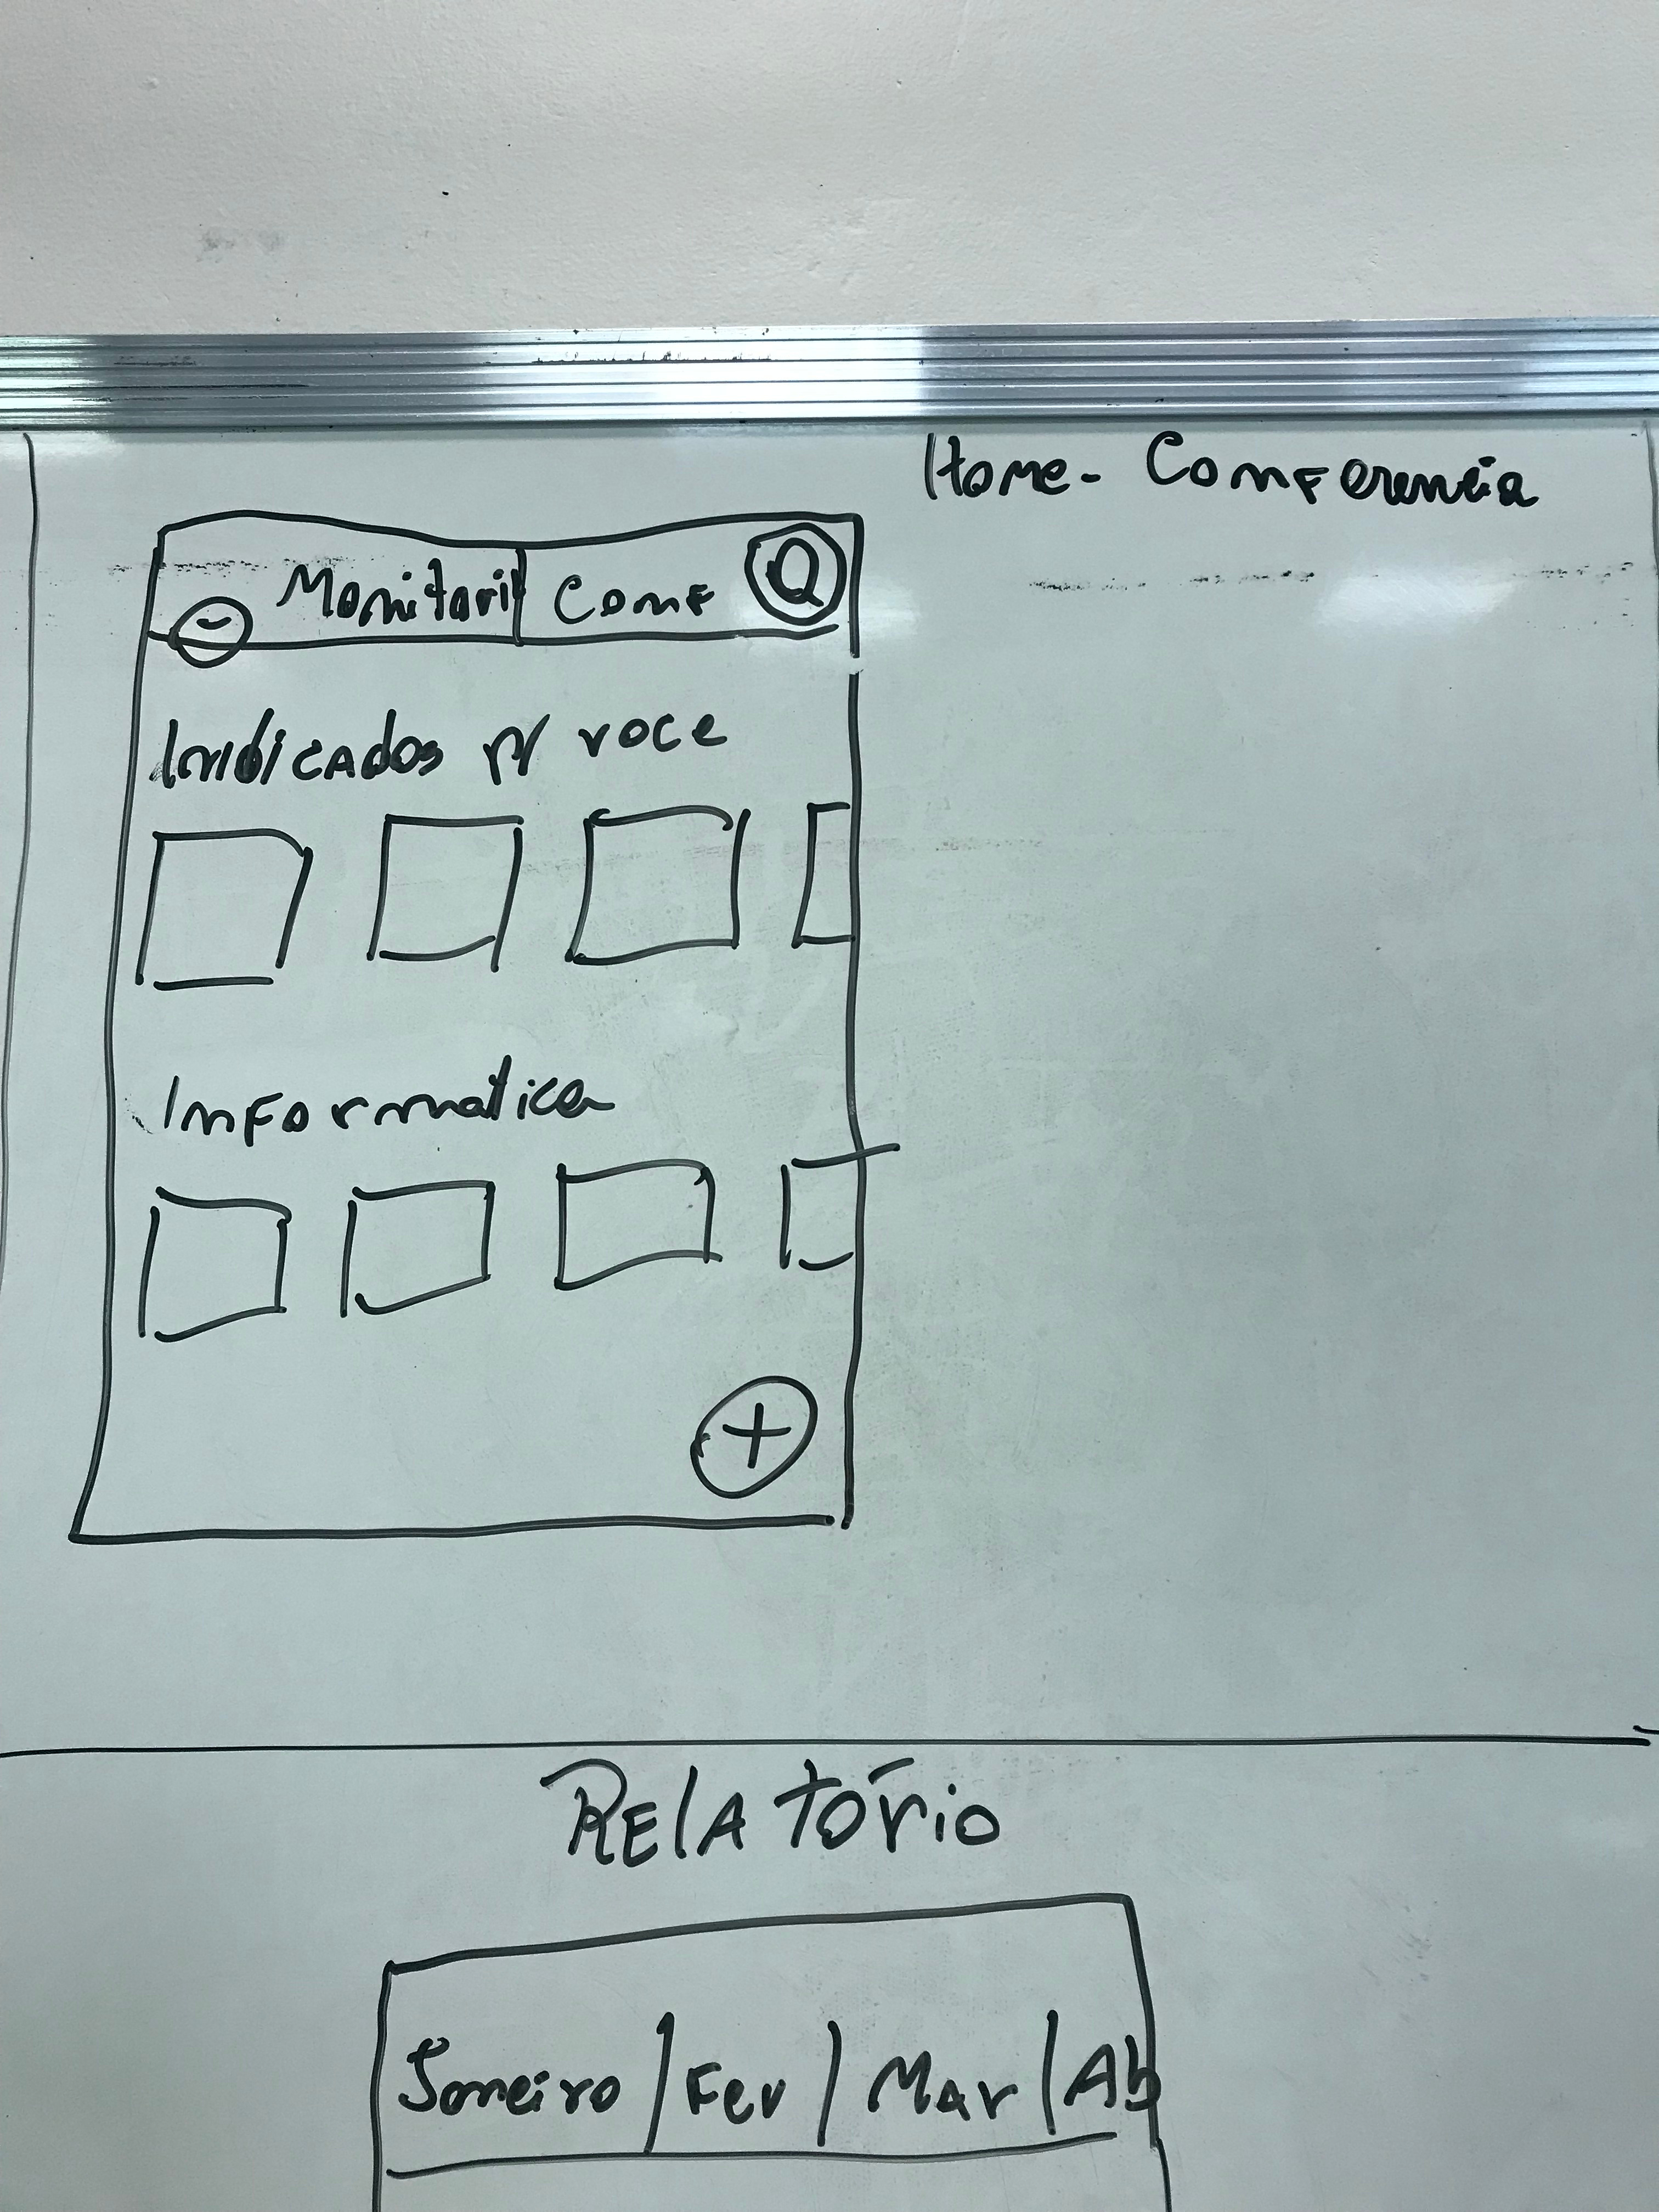 Home - Conferencia
Monitori Conf
Indicados p/ voce
Informatica
+
RElAtório
Janeiro / Fev / Mar / Ab